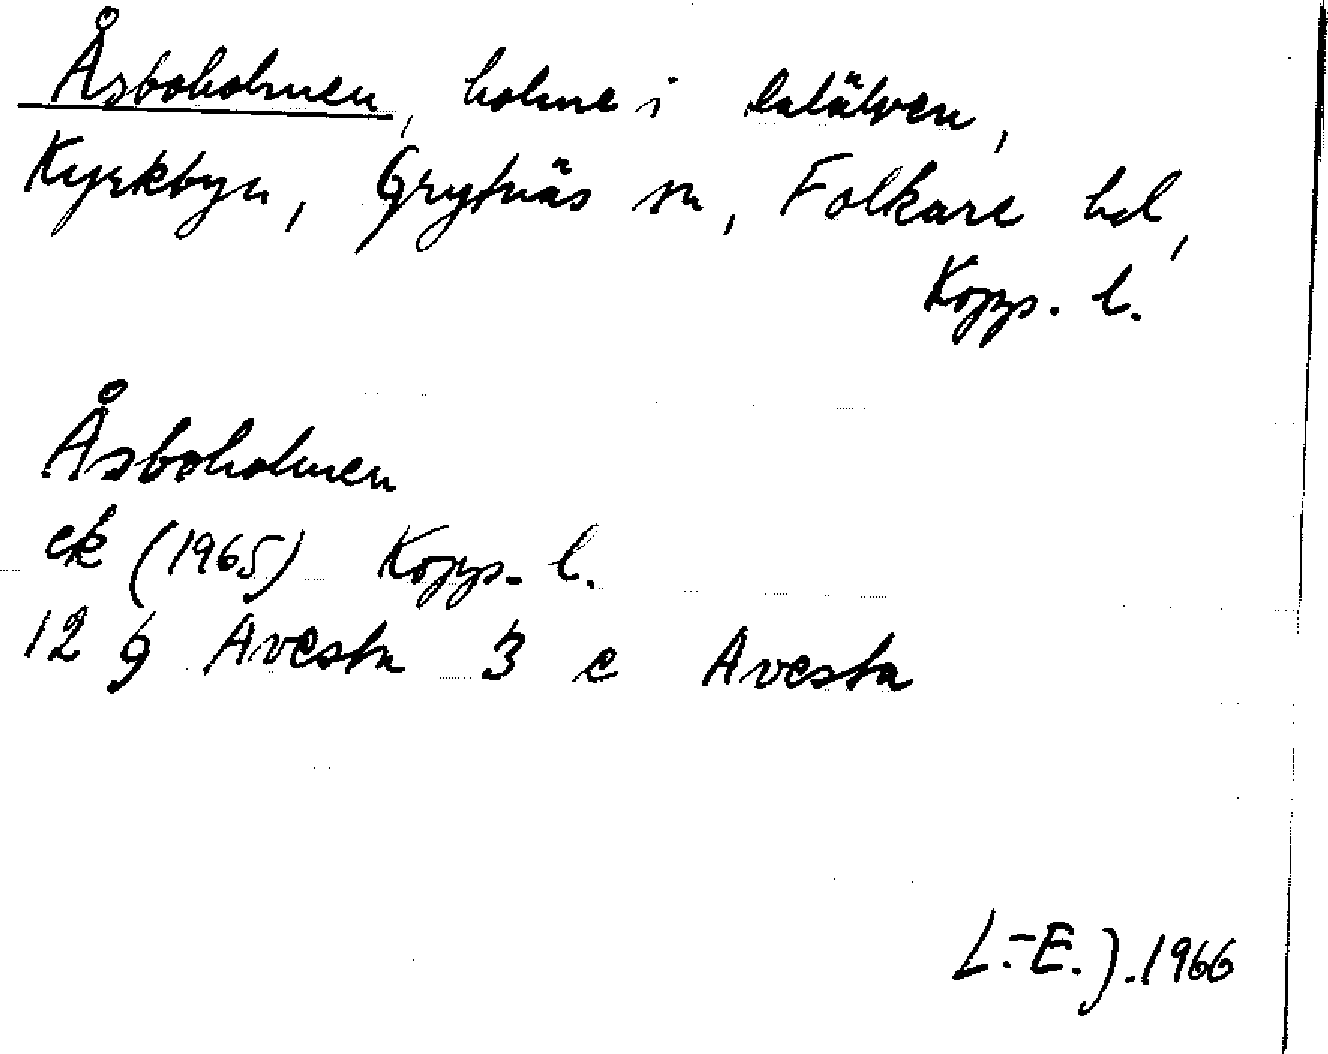 Åsboholmen, holme i Dalälven,
Kyrkbyn, Grytnäs sn, Folkare hd,
Kopp. l.
Åsboholmen
ek (1965) Kopp. l.
12 g Avesta 3 c Avesta
L.-E. J. 1966